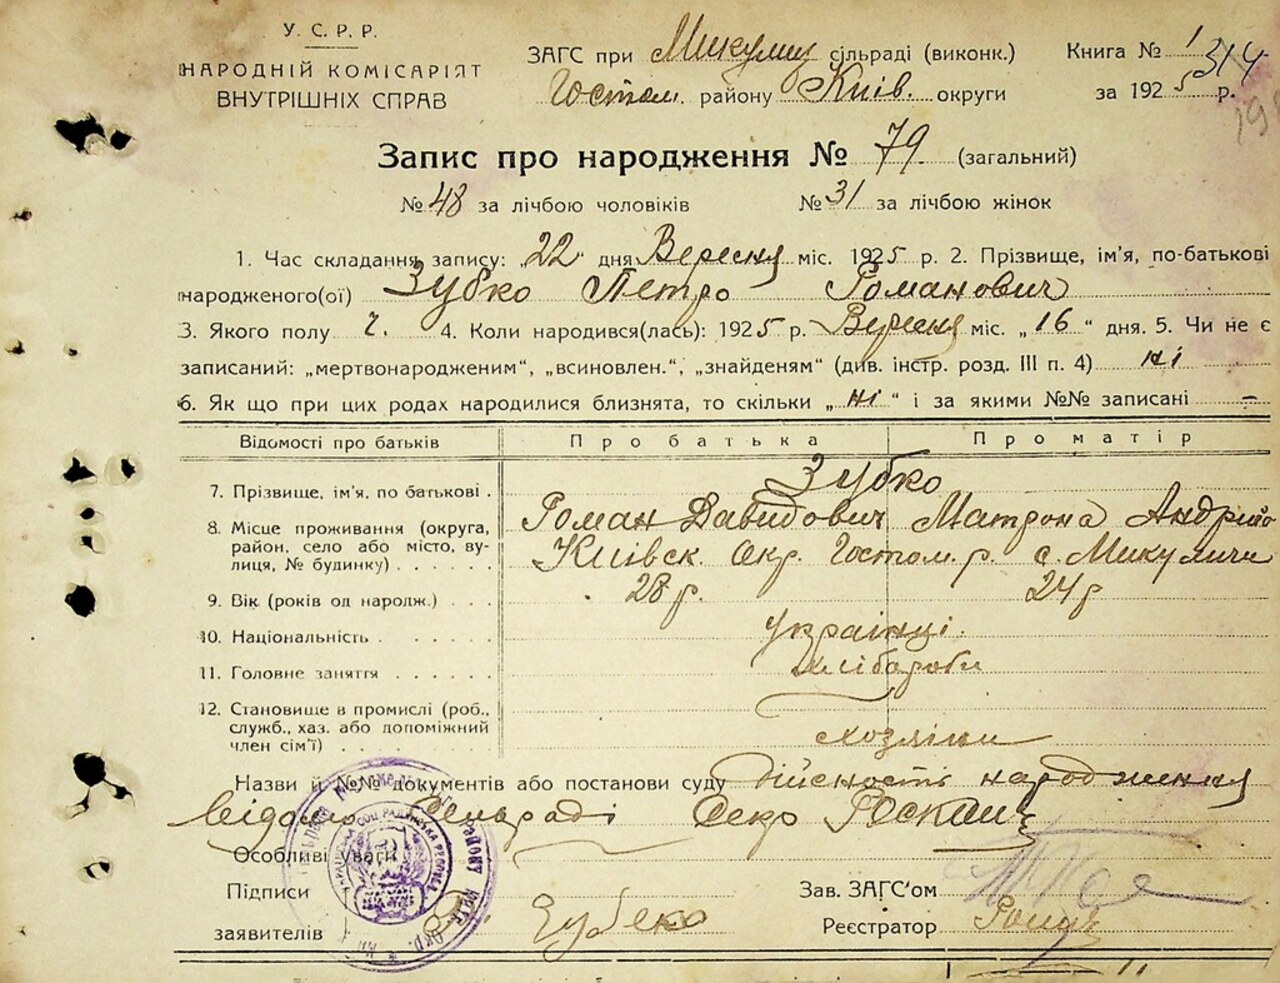 У. С. Р. Р.
НАРОДНІЙ КОМІСАРІЯТ
ВНУТРІШНІХ СПРАВ
ЗАГС при Микулиц сільраді (виконк.)
Гостом. району Київ. округи
Книга № 1 314
за 1925 р.
Запис про народження № 79 (загальний)
№ 48 за лічбою чоловіків № 31 за лічбою жінок
1. Час складання запису: „22" дня Вересня міс. 1925 р. 2. Прізвище, ім'я, по-батькові
народженого(ої) Зубко Петро Романович
3. Якого полу ч. 4. Коли народився(лась): 1925 р. Вересня міс. „16" дня. 5. Чи не є
записаний: „мертвонародженим", „всиновлен.", „знайденям" (див. інстр. розд. III п. 4) ні
6. Як що при цих родах народилися близнята, то скільки „ні" і за якими №№ записані —
Відомості про батьків Про батька Про матір
7. Прізвище, ім'я, по батькові . Зубко
Роман Давидович Матрона Андрію
8. Місце проживання (округа, район, село або місто, вулиця, № будинку) . . . . . Київск. Окр. Гостом. р. с. Микуличи
9. Вік (років од народж.) . . . 28 р. 24 р
10. Національність . . . . . . Українці.
11. Головне заняття . . . . . . хліборoби
12. Становище в промислі (роб., служб., хаз. або допоміжний член сім'ї) . . . . . . . хозяіни
Назви й №№ документів або постанови суду дійсность народження
відомо Сельраді Секр
Особливі уваги
Підписи Зав. ЗАГС'ом
заявителів Зубеко Реєстратор